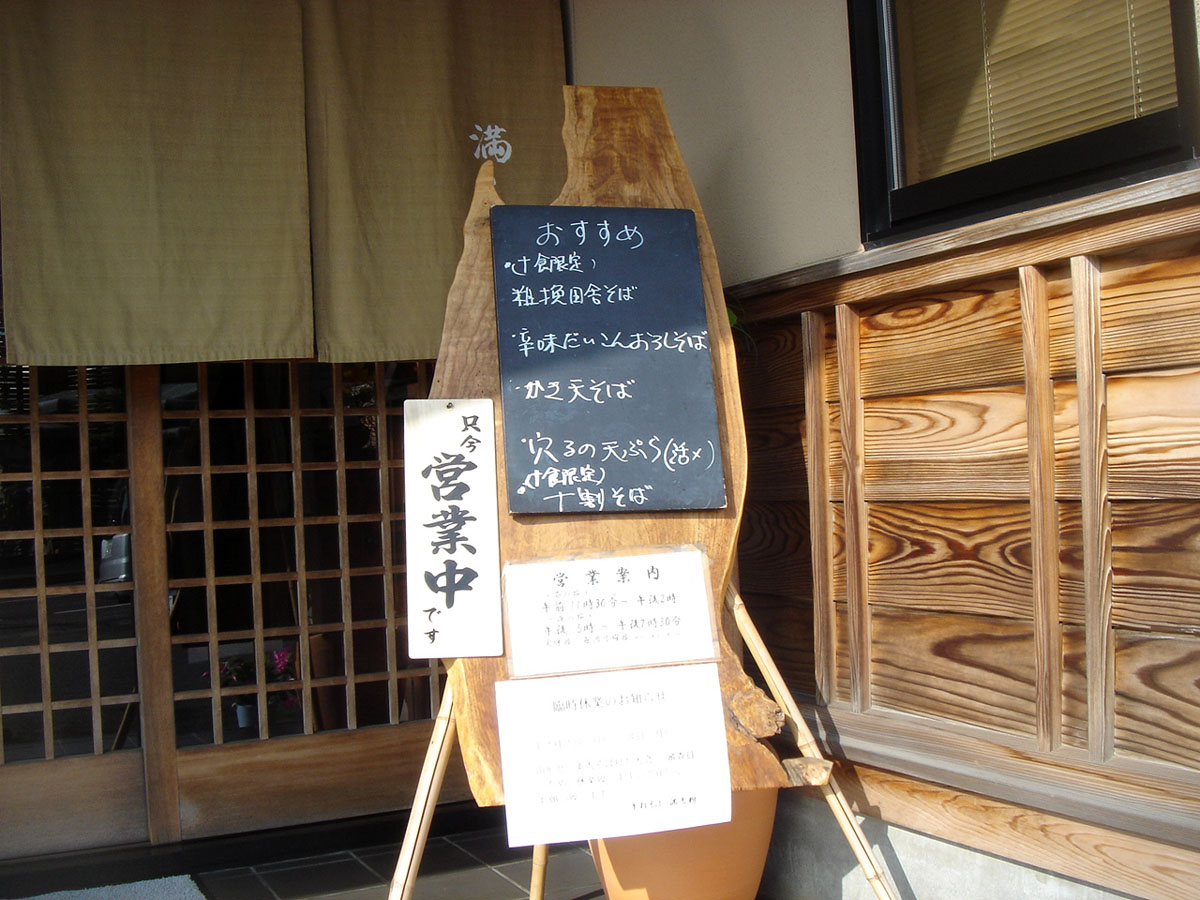 満
おすすめ
・(十食限定)
粗挽田舎そば
・辛味だいこんおろしそば
・かき天そば
・穴るの天ぷら(活〆)
(十食限定)
・十割そば
只今
営業中
です
営業案内
午前11時30分～午後2時
午後5時～午後7時30分
臨時休業のお知らせ